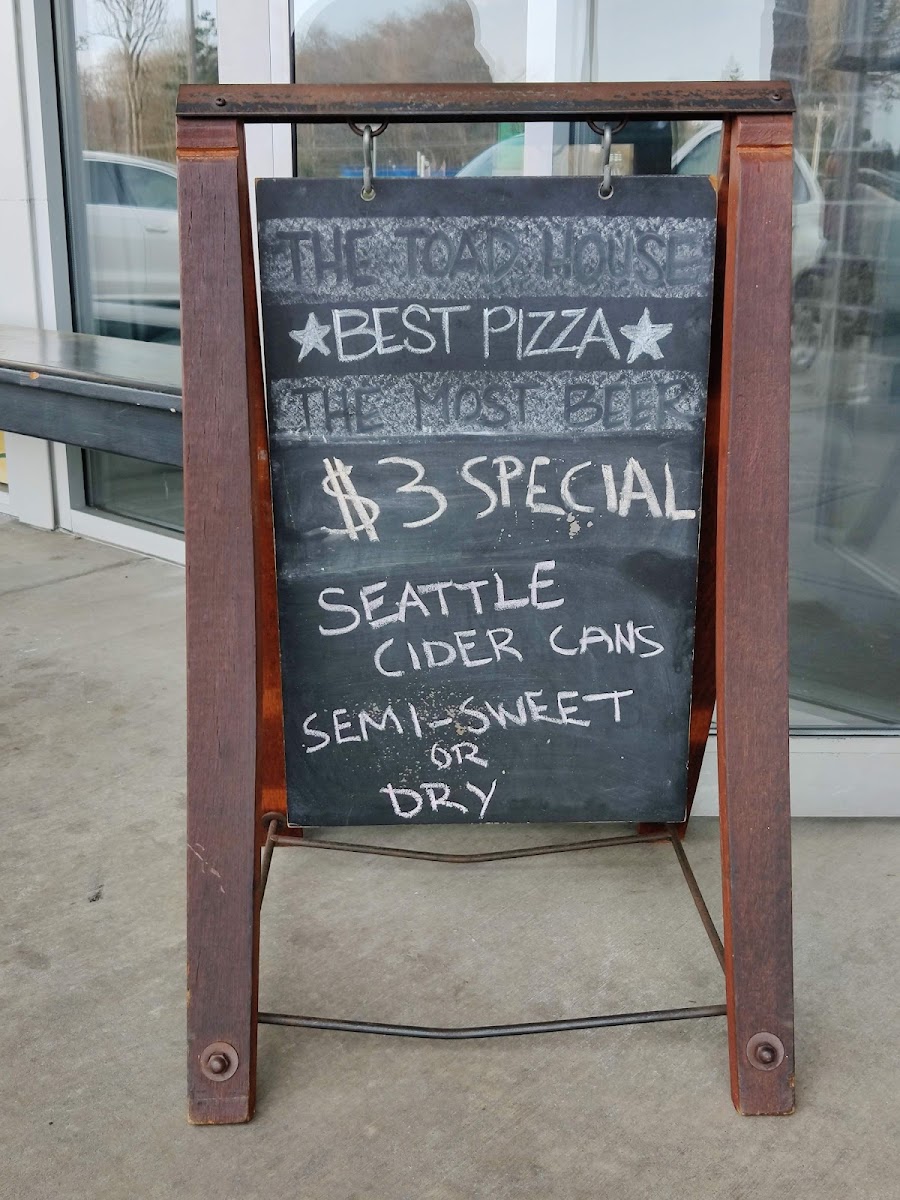 THE TOAD HOUSE
BEST PIZZA
THE MOST BEER
$3 SPECIAL
SEATTLE
CIDER CANS
SEMI-SWEET
OR
DRY